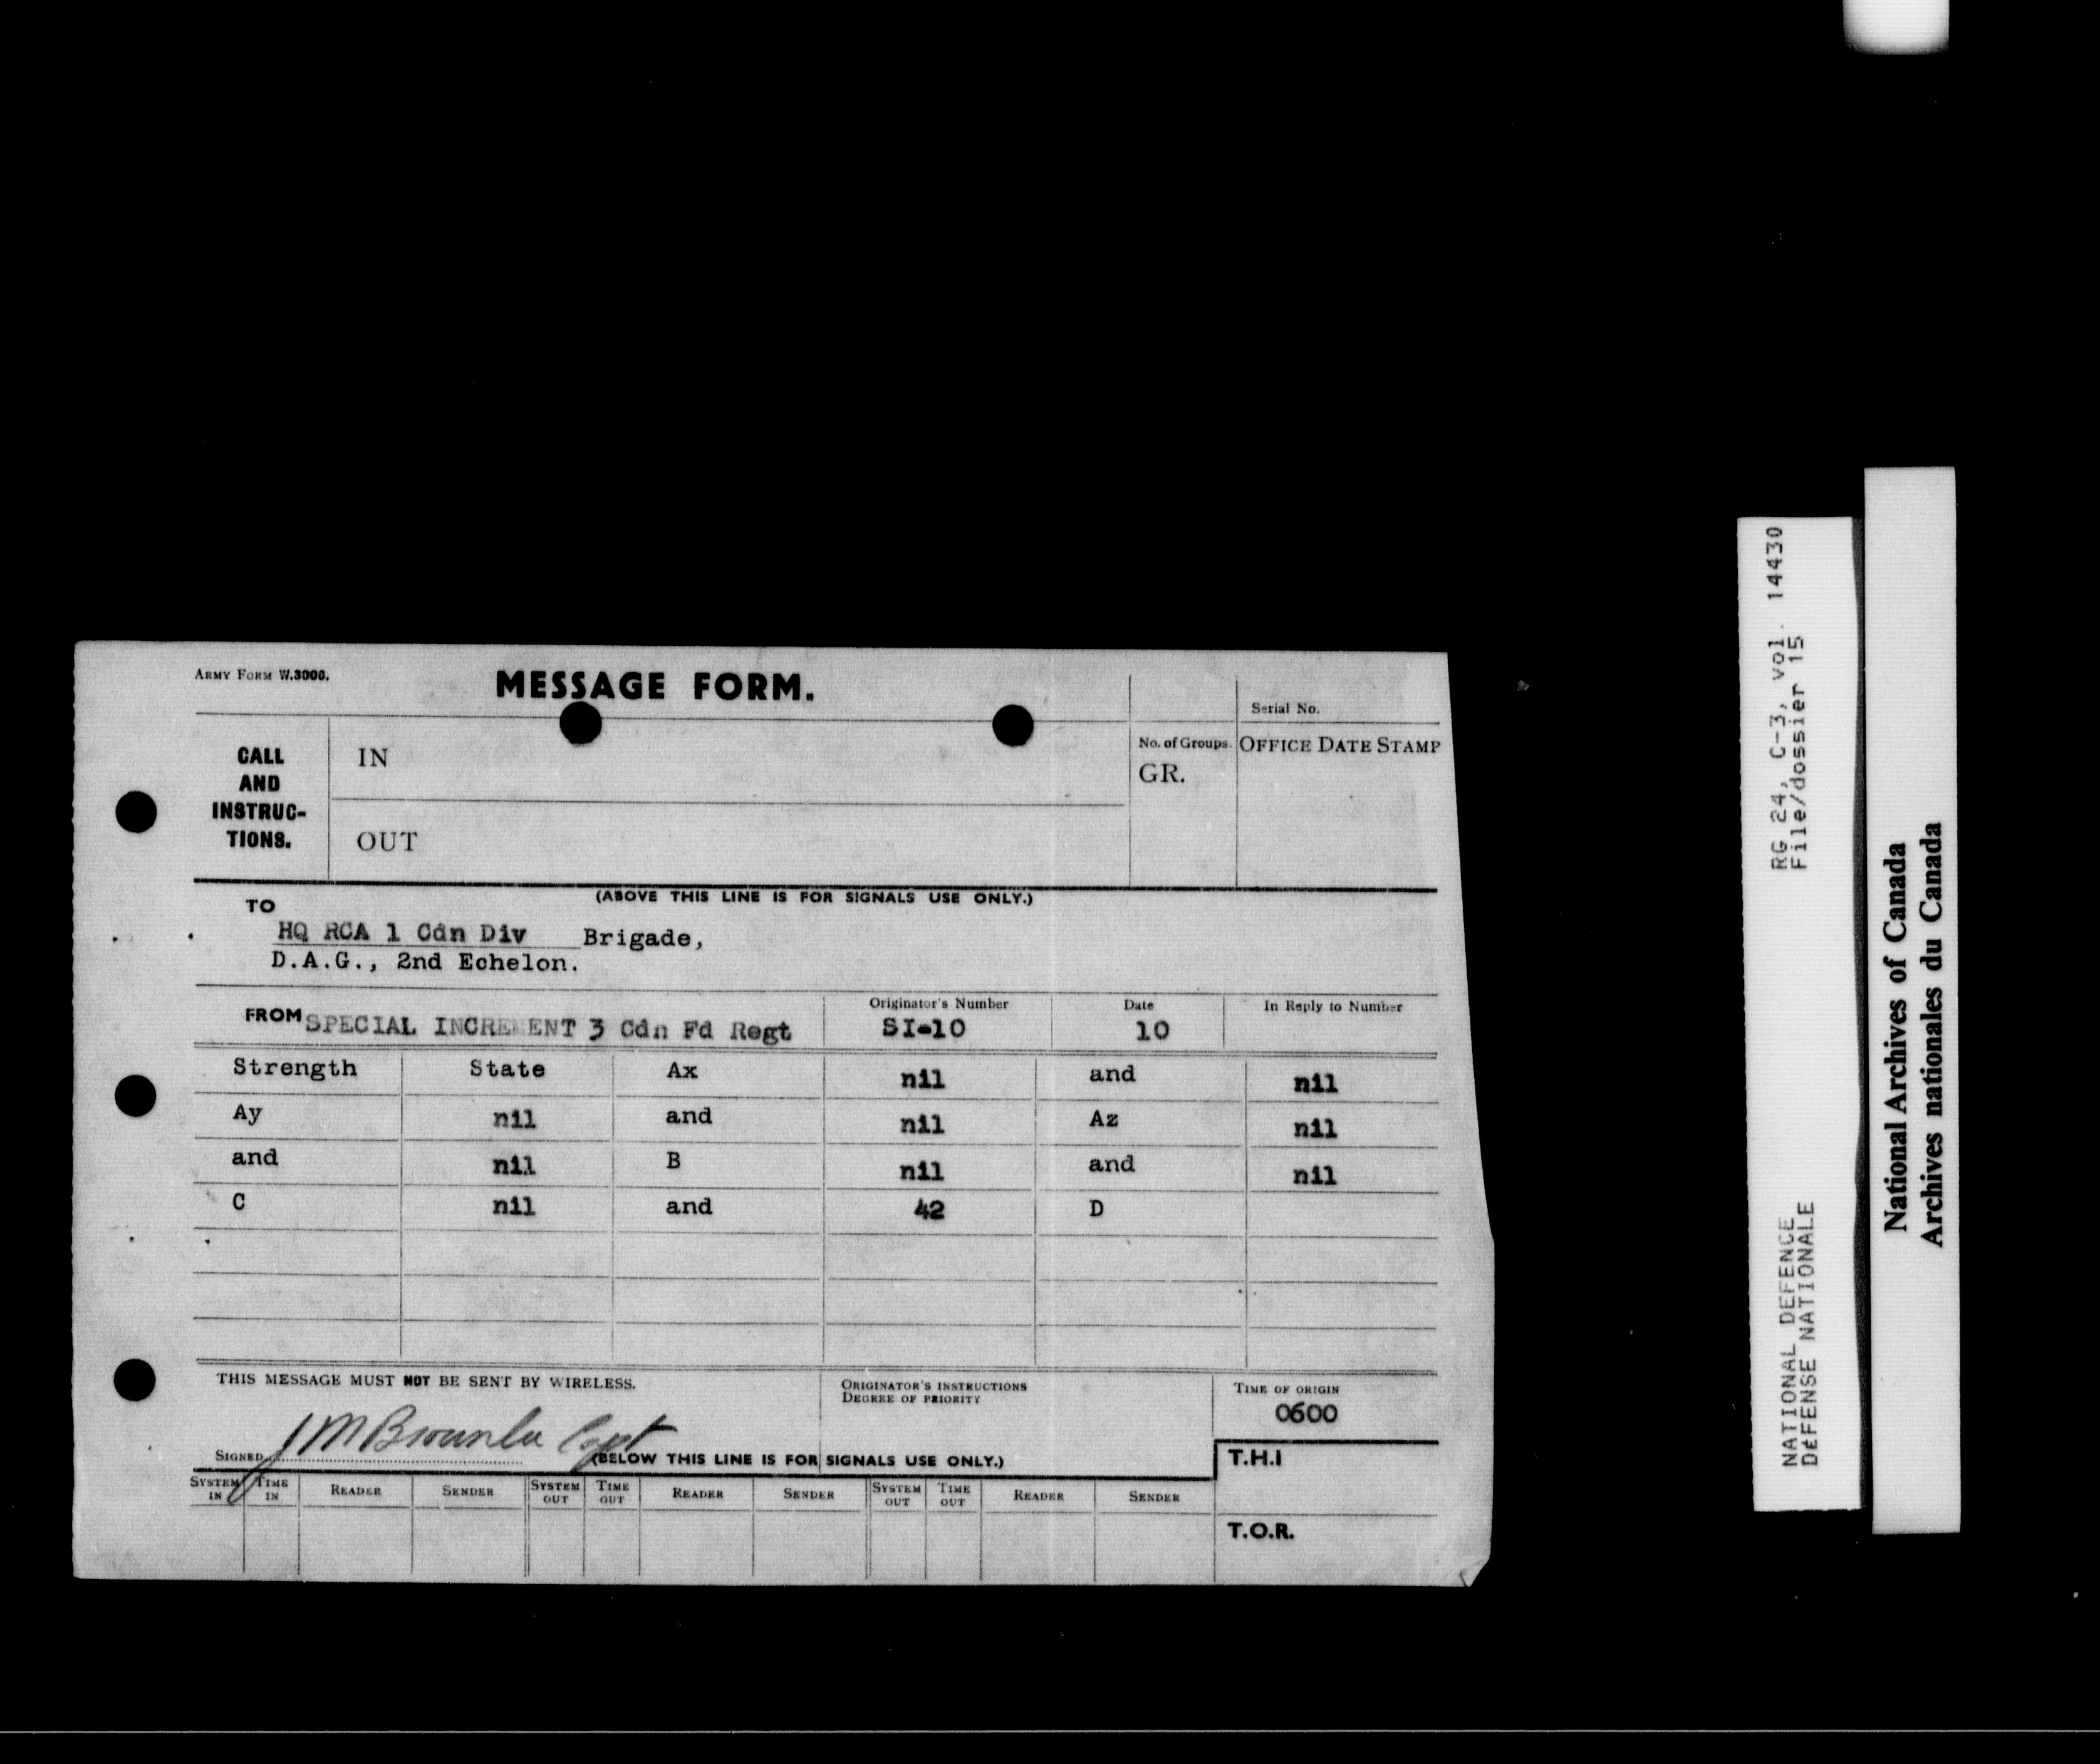 ARMY FORM W.3000.
MESSAGE FORM.
Serial No.
CALL
AND
INSTRUC-
TIONS.
IN
OUT
No. of Groups.
GR.
OFFICE DATE STAMP
(ABOVE THIS LINE IS FOR SIGNALS USE ONLY.)
TO
HQ RCA 1 Cdn Div Brigade,
D.A.G., 2nd Echelon.
FROM SPECIAL INCREMENT 3 Cdn Fd Regt
Originator's Number
SI-10
Date
10
In Reply to Number
Strength State Ax nil and nil
Ay nil and nil Az nil
and nil B nil and nil
C nil and 42 D
THIS MESSAGE MUST NOT BE SENT BY WIRELESS.
ORIGINATOR'S INSTRUCTIONS
DEGREE OF PRIORITY
TIME OF ORIGIN
0600
SIGNED J M Capt
(BELOW THIS LINE IS FOR SIGNALS USE ONLY.)
T.H.I
SYSTEM IN TIME IN READER SENDER SYSTEM OUT TIME OUT READER SENDER SYSTEM OUT TIME OUT READER SENDER
T.O.R.
RG 24, C-3, vol. 14430
File/dossier 15
NATIONAL DEFENCE
DÉFENSE NATIONALE
National Archives of Canada
Archives nationales du Canada